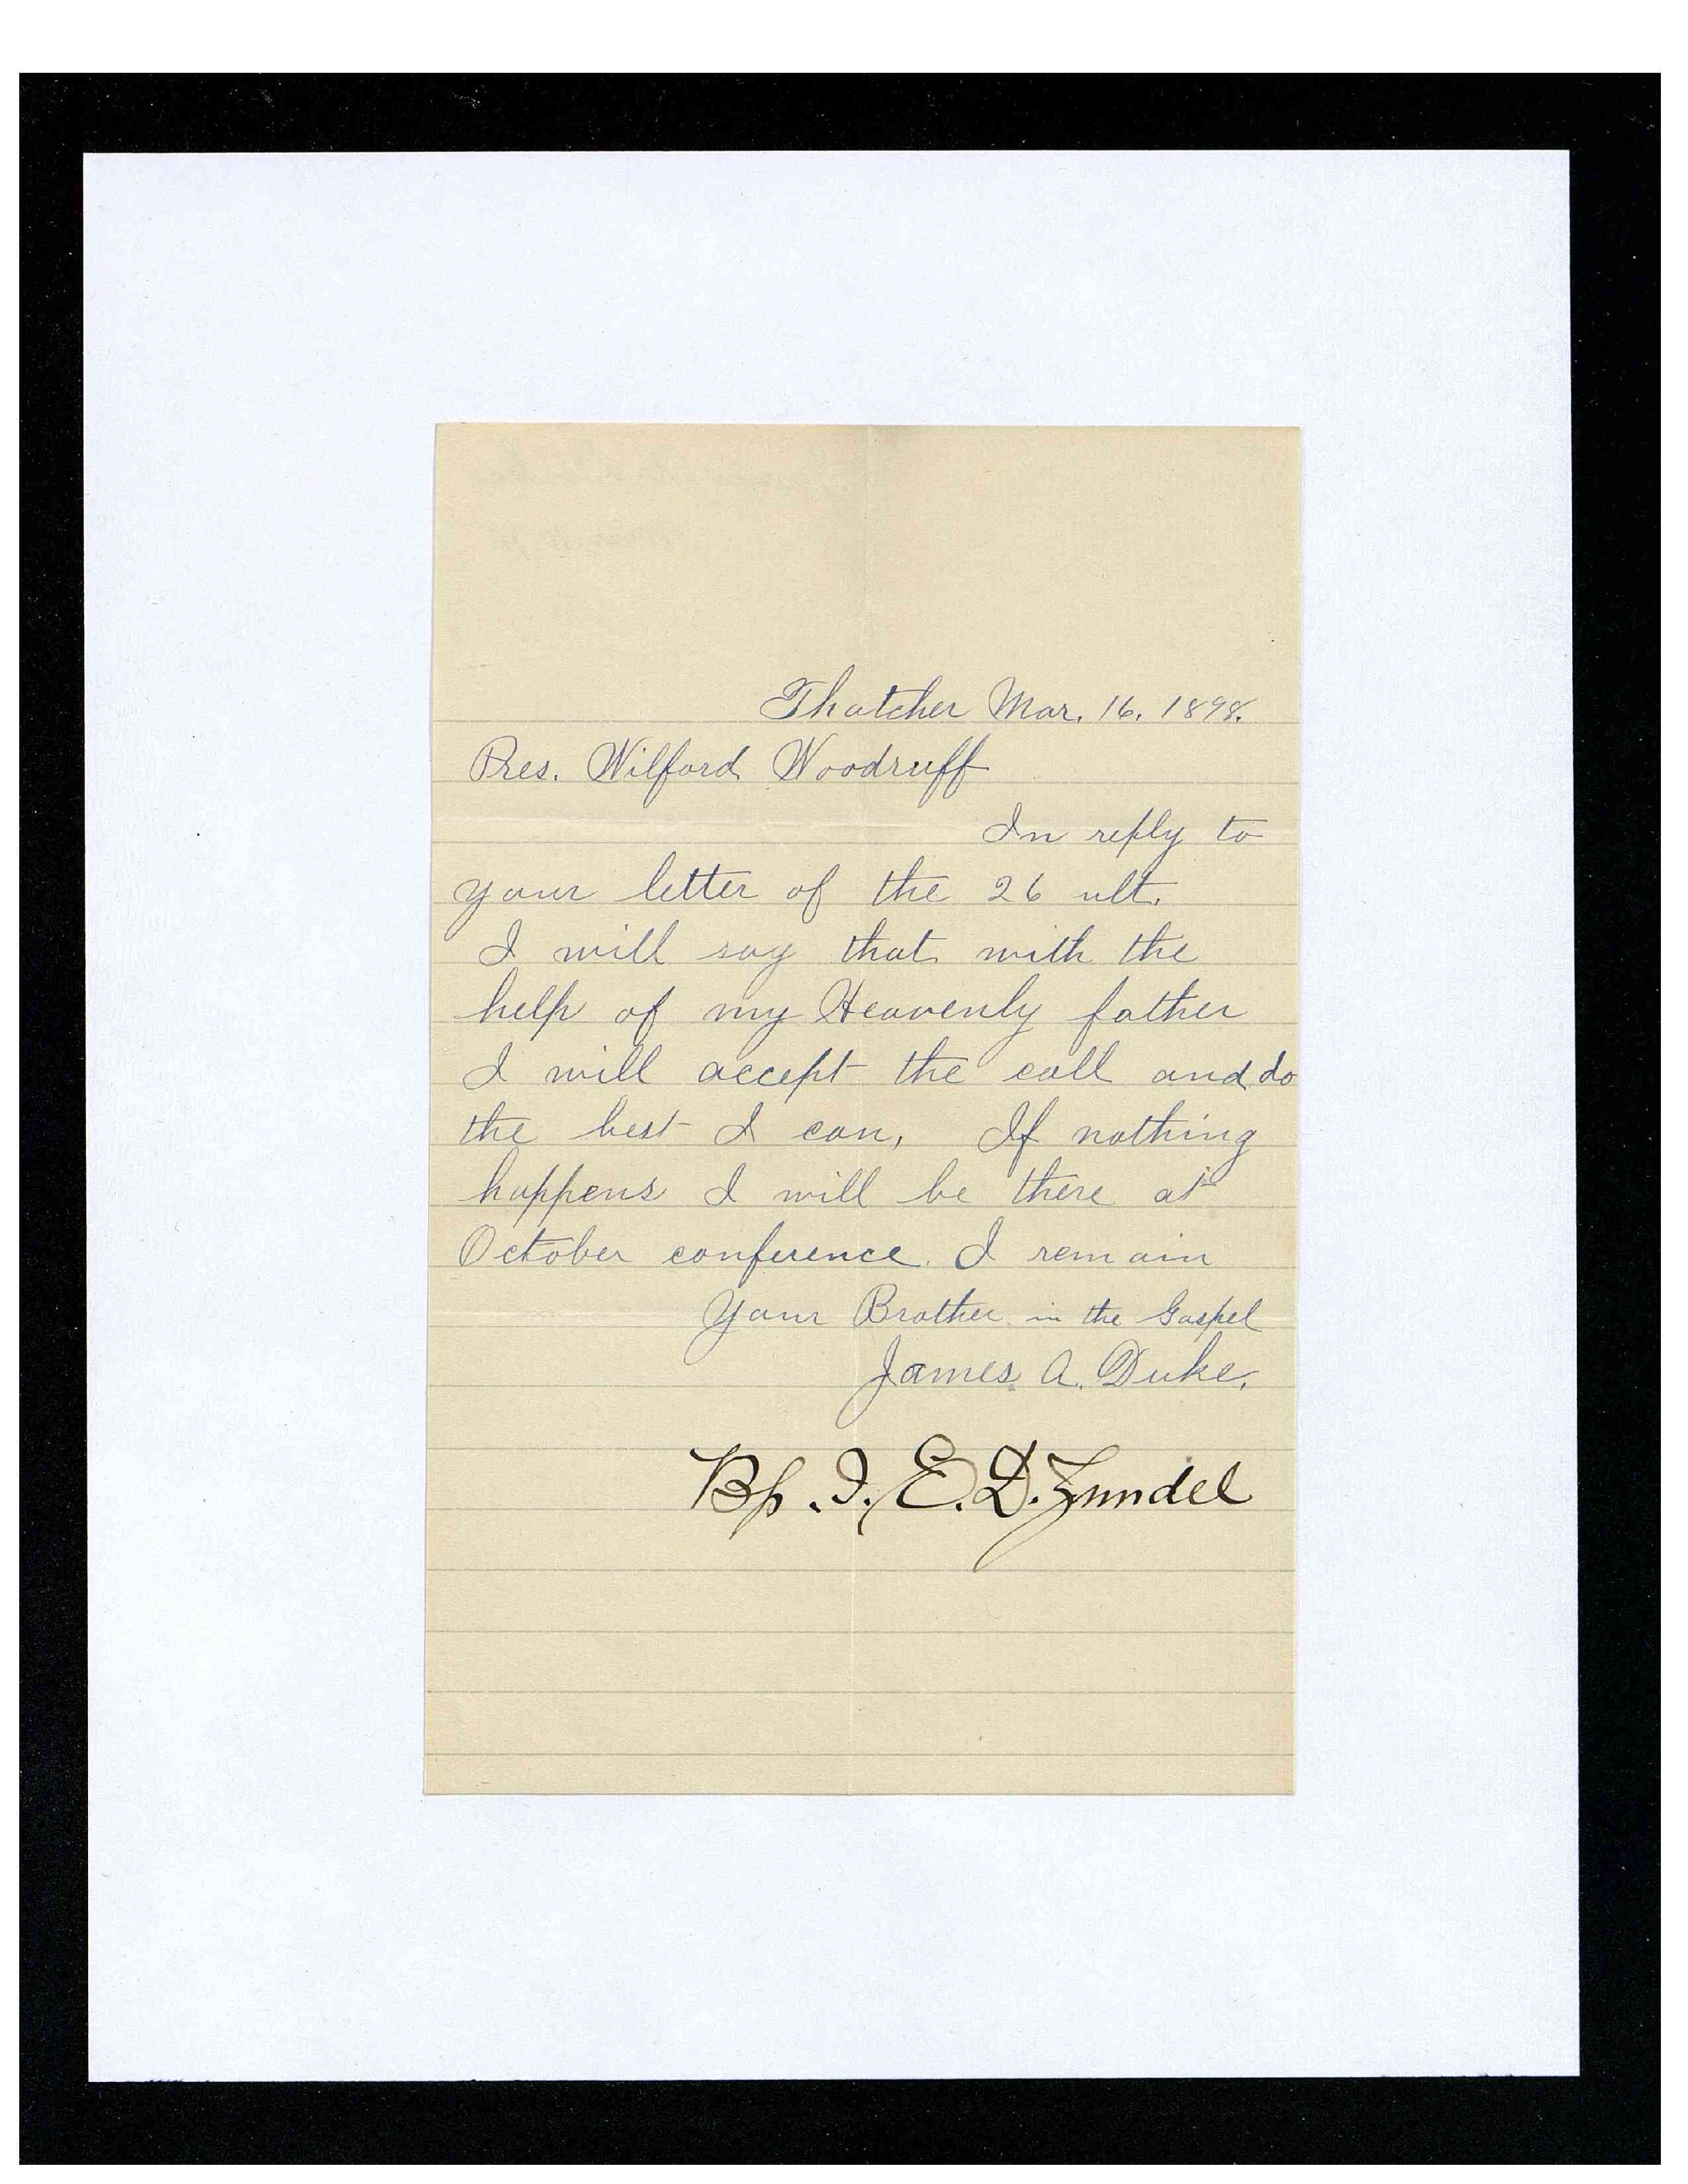 Thatcher Mar. 16. 1898.
Pres. Wilford Woodruff
In reply to
your letter of the 26 ult.
I will say that with the
help of my Heavenly father
I will accept the call and do
the best I can, If nothing
happens I will be there at
October conference. I remain
Your Brother in the Gospel
James A. Duke.
Bp. I. E. D. Zundel